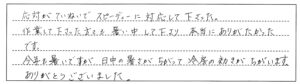 応対がていねいでスピーディーに対応して下さった。
作業して下さった方も暑い中して下さり本当にありがたかった
です。
今年も暑いですが日中の暑さがちがって冷房の効きがちがいます
ありがとうございました。